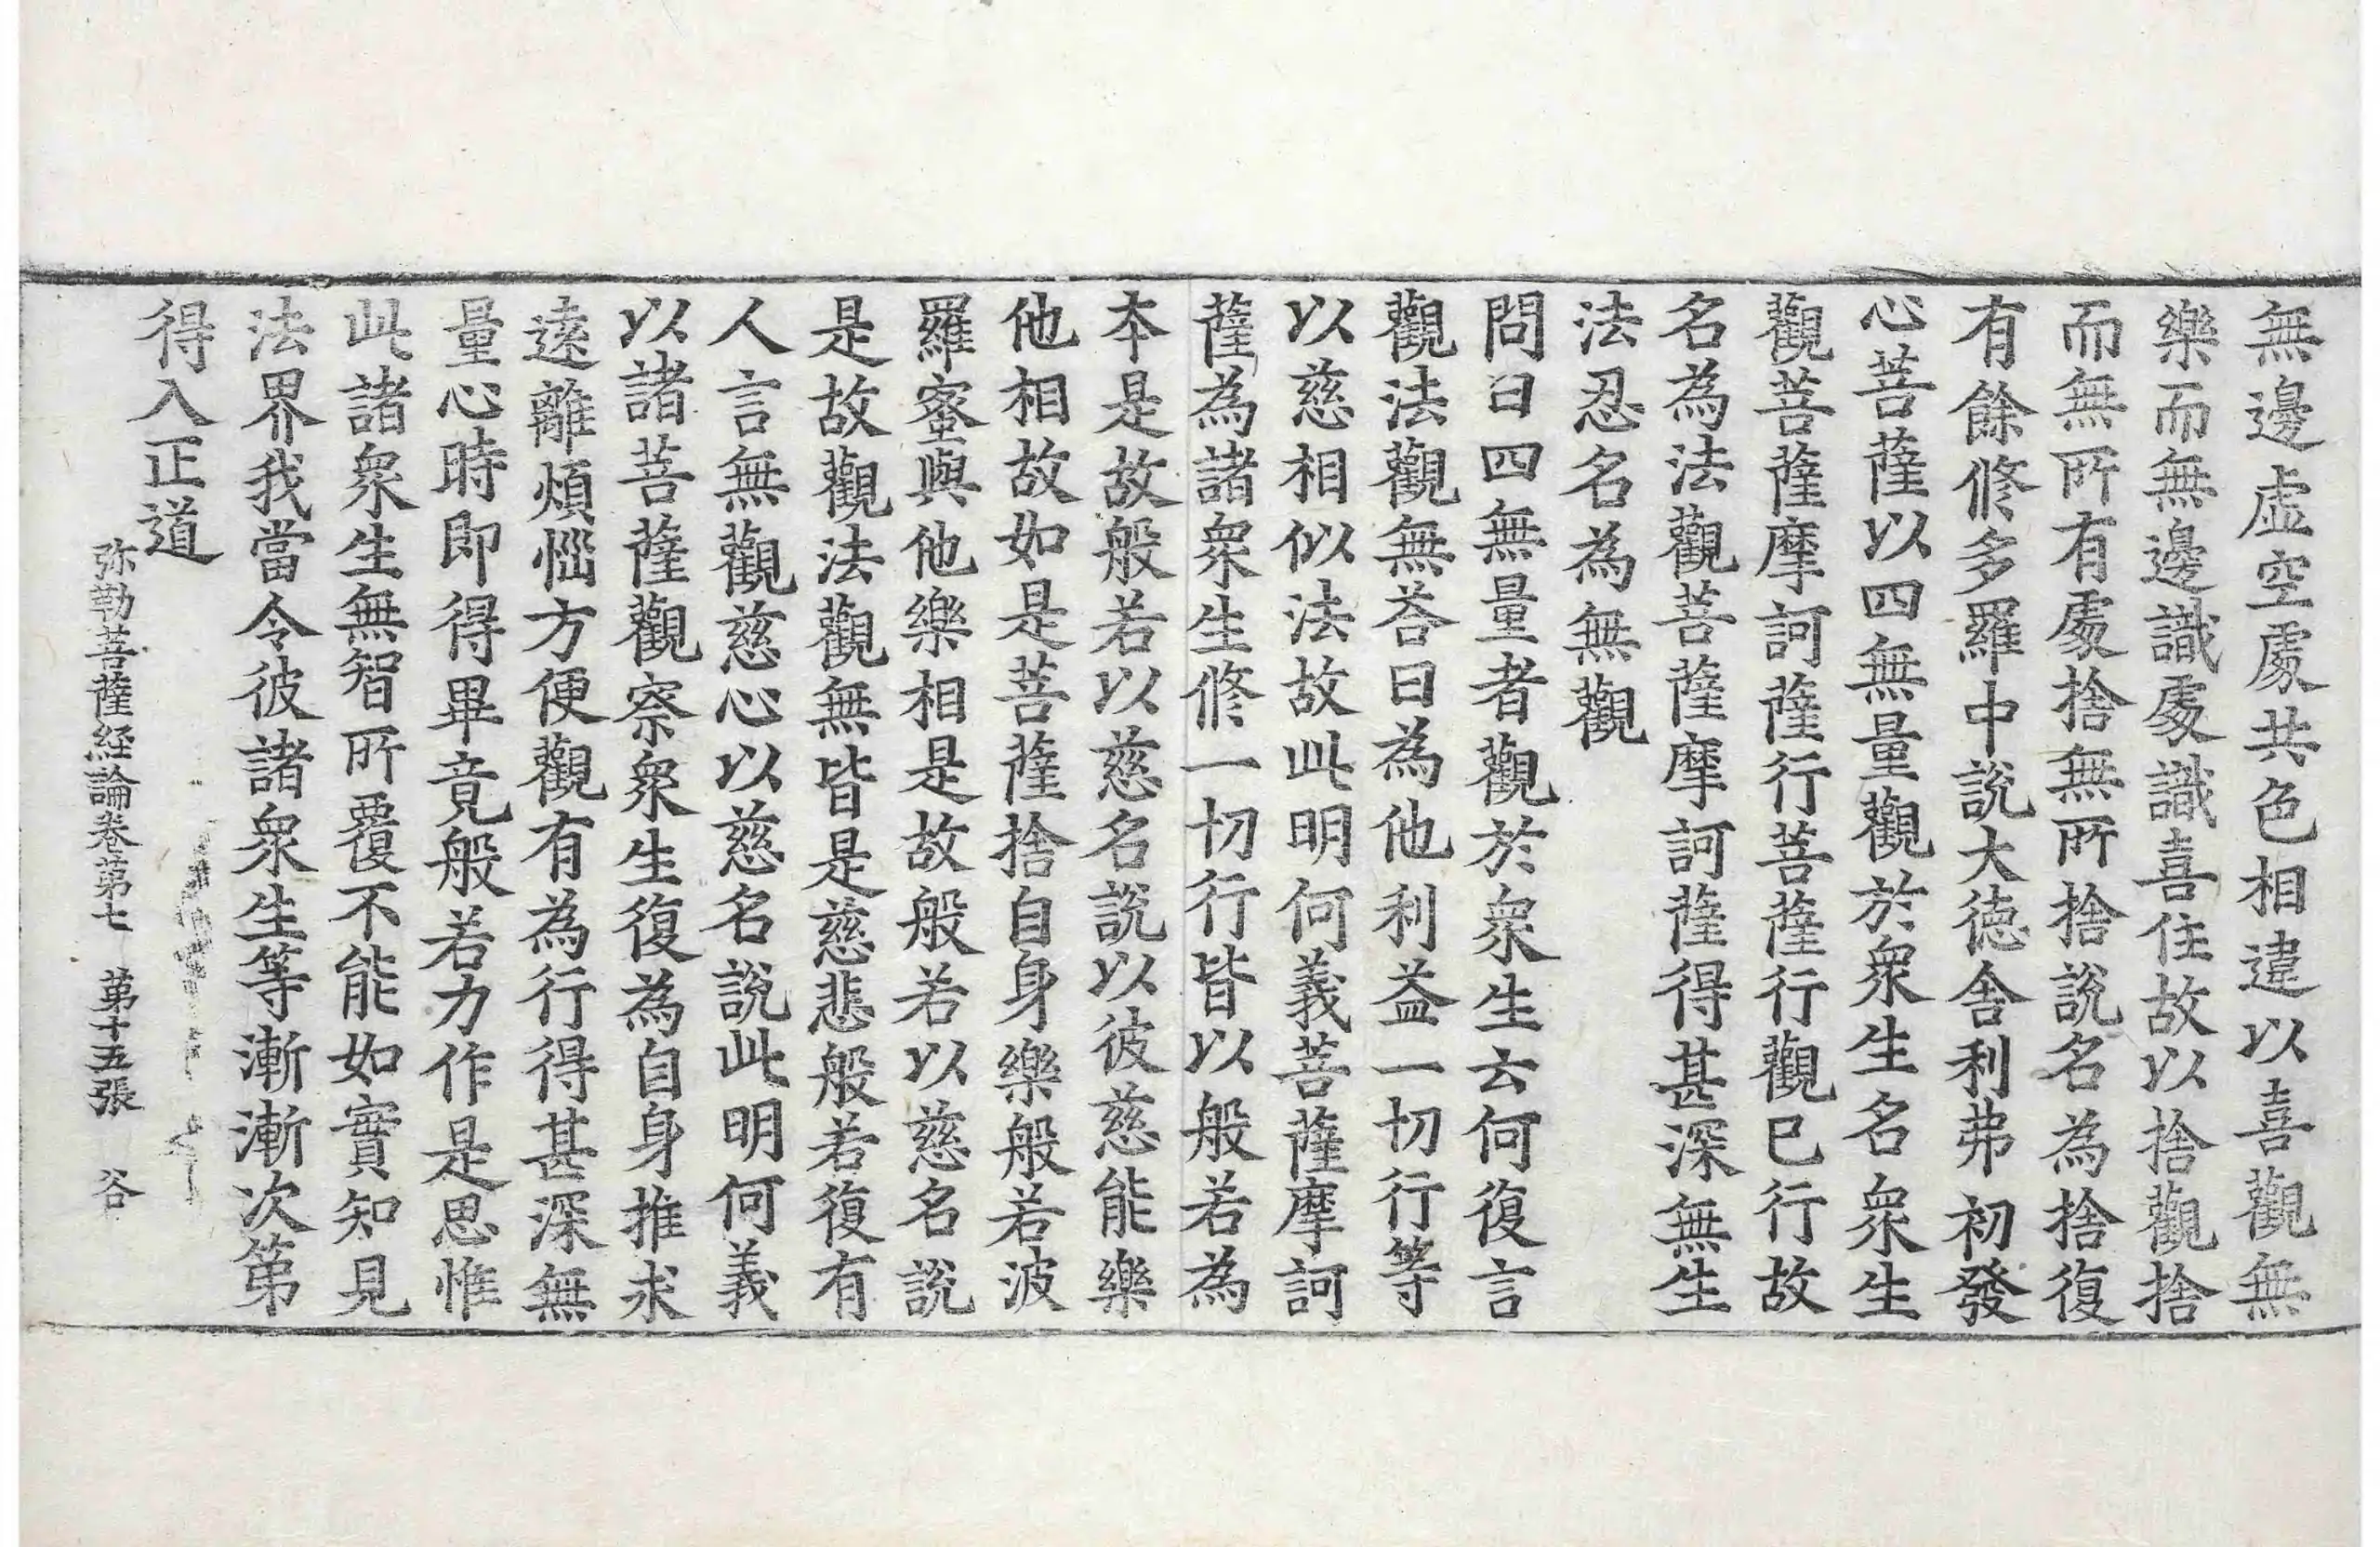 無邊虛空處共色相違以喜觀無
樂而無邊識處識喜住故以捨觀捨
而無所有處捨無所捨說名為捨復
有餘修多羅中說大德舍利弗初發
心菩薩以四無量觀於衆生名衆生
觀菩薩摩訶薩行菩薩行觀已行故
名為法觀菩薩摩訶薩得甚深無生
法忍名為無觀
問曰四無量者觀於衆生云何復言
觀法觀無荅曰為他利益一切行等
以慈相似法故此明何義菩薩摩訶
薩為諸衆生修一切行皆以般若為
本是故般若以慈名說以彼慈能樂
他相故如是菩薩捨自身樂般若波
羅蜜與他樂相是故般若以慈名說
是故觀法觀無皆是慈悲般若復有
人言無觀慈心以慈名說此明何義
以諸菩薩觀察衆生復為自身推求
遠離煩惱方便觀有為行得甚深無
量心時即得畢竟般若力作是思惟
此諸衆生無智所覆不能如實知見
法界我當令彼諸衆生等漸漸次第
得入正道
弥勒菩薩経論卷第七 第十五張 谷